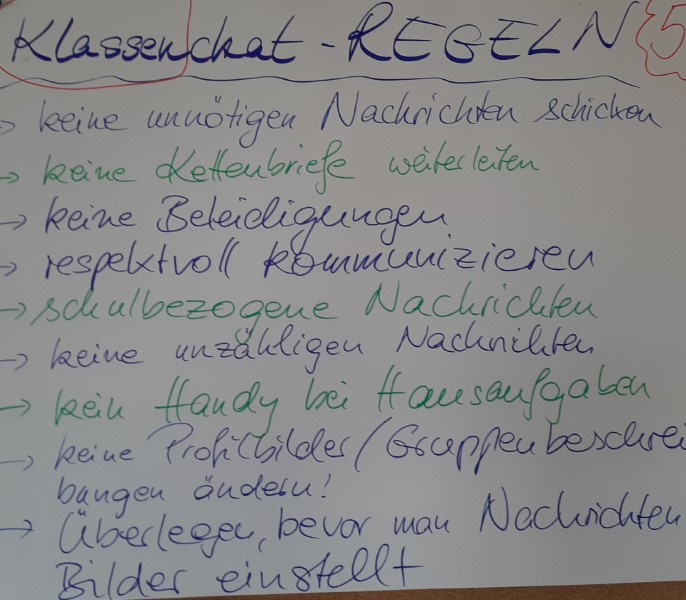 Klassenchat - REGELN 5
→ keine unnötigen Nachrichten schicken
→ keine Kettenbriefe weiterleiten
→ keine Beleidigungen
→ respektvoll kommunizieren
→ schulbezogene Nachrichten
→ keine unzähligen Nachrichten
→ kein Handy bei Hausaufgaben
→ keine Profilbilder/Gruppenbeschrei
bungen ändern!
→ Überlegen, bevor man Nachrichten
Bilder einstellt